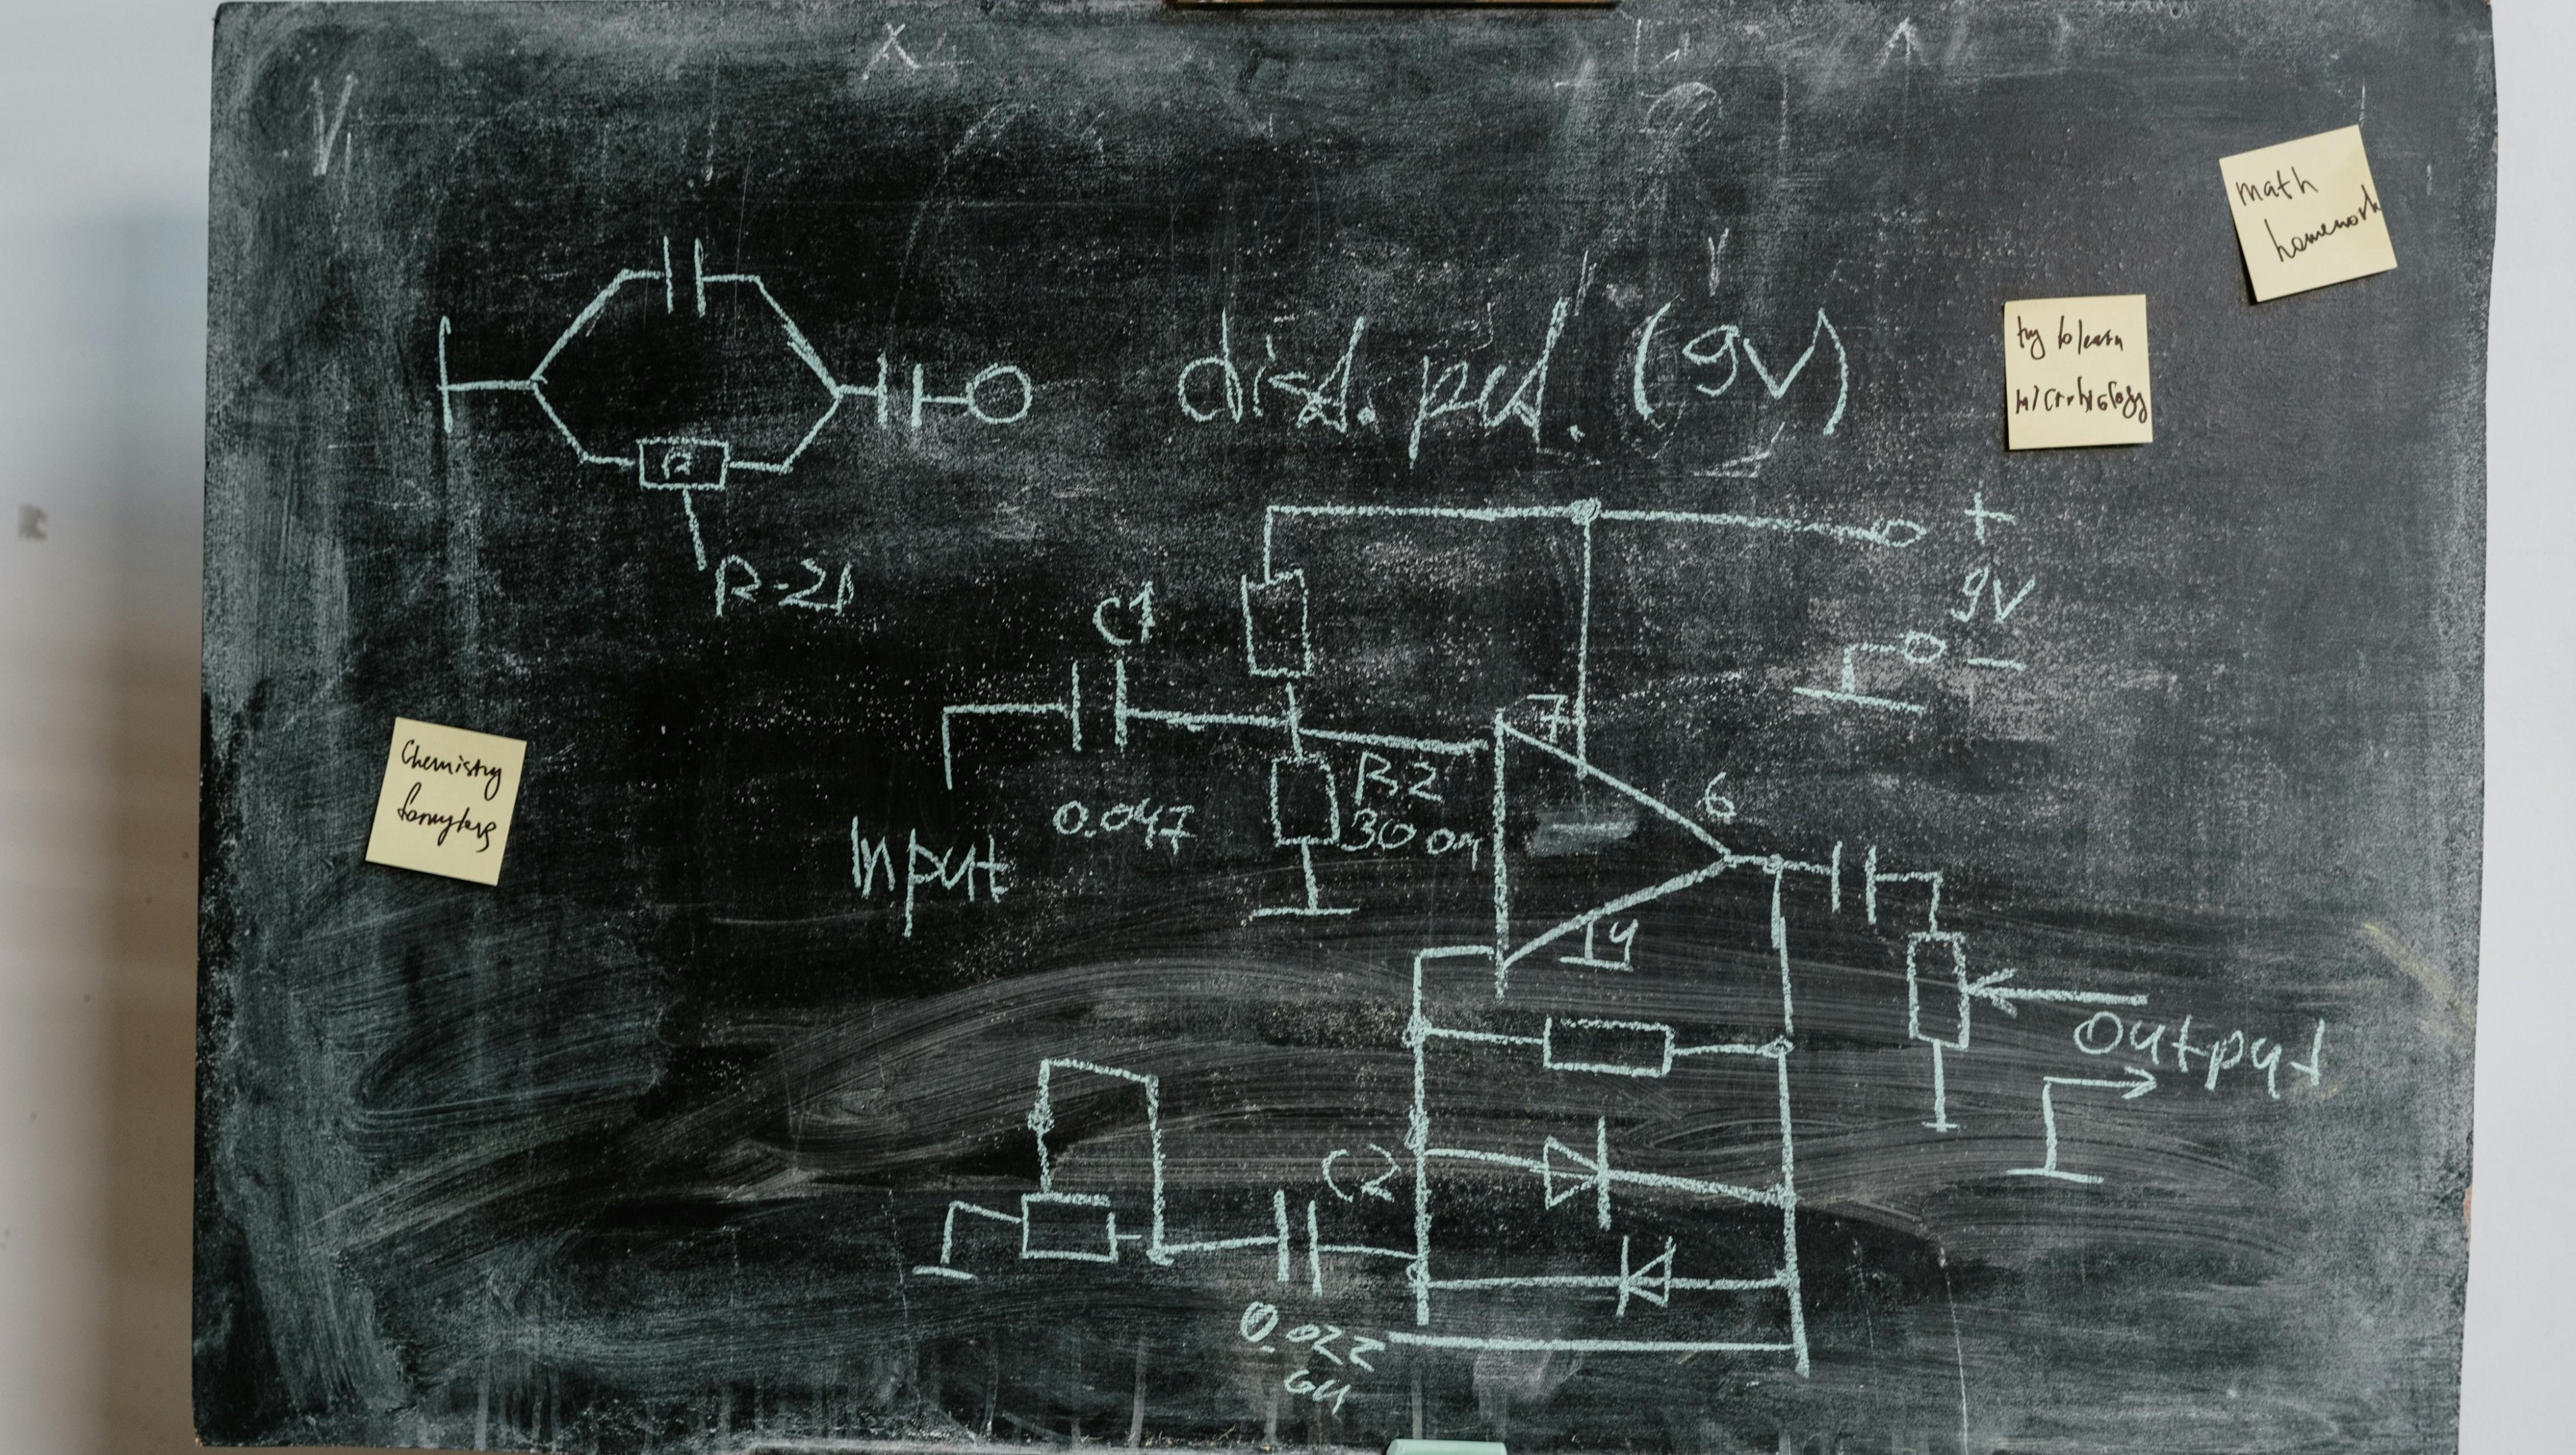 X
V
math
homework
dist. ped. (9V)
try to learn
microbiology
R
R-21
+
9V
-
C1
0.047
Input
R2
300
7
6
4
Output
C2
0.022
Chemistry